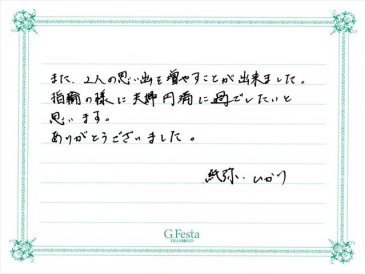 また、2人の思い出を増やすことが出来ました。
指輪の様に夫婦円満に過ごしたいと
思います。
ありがとうございました。
紘弥・ひかり
G.Festa
DIAMOND